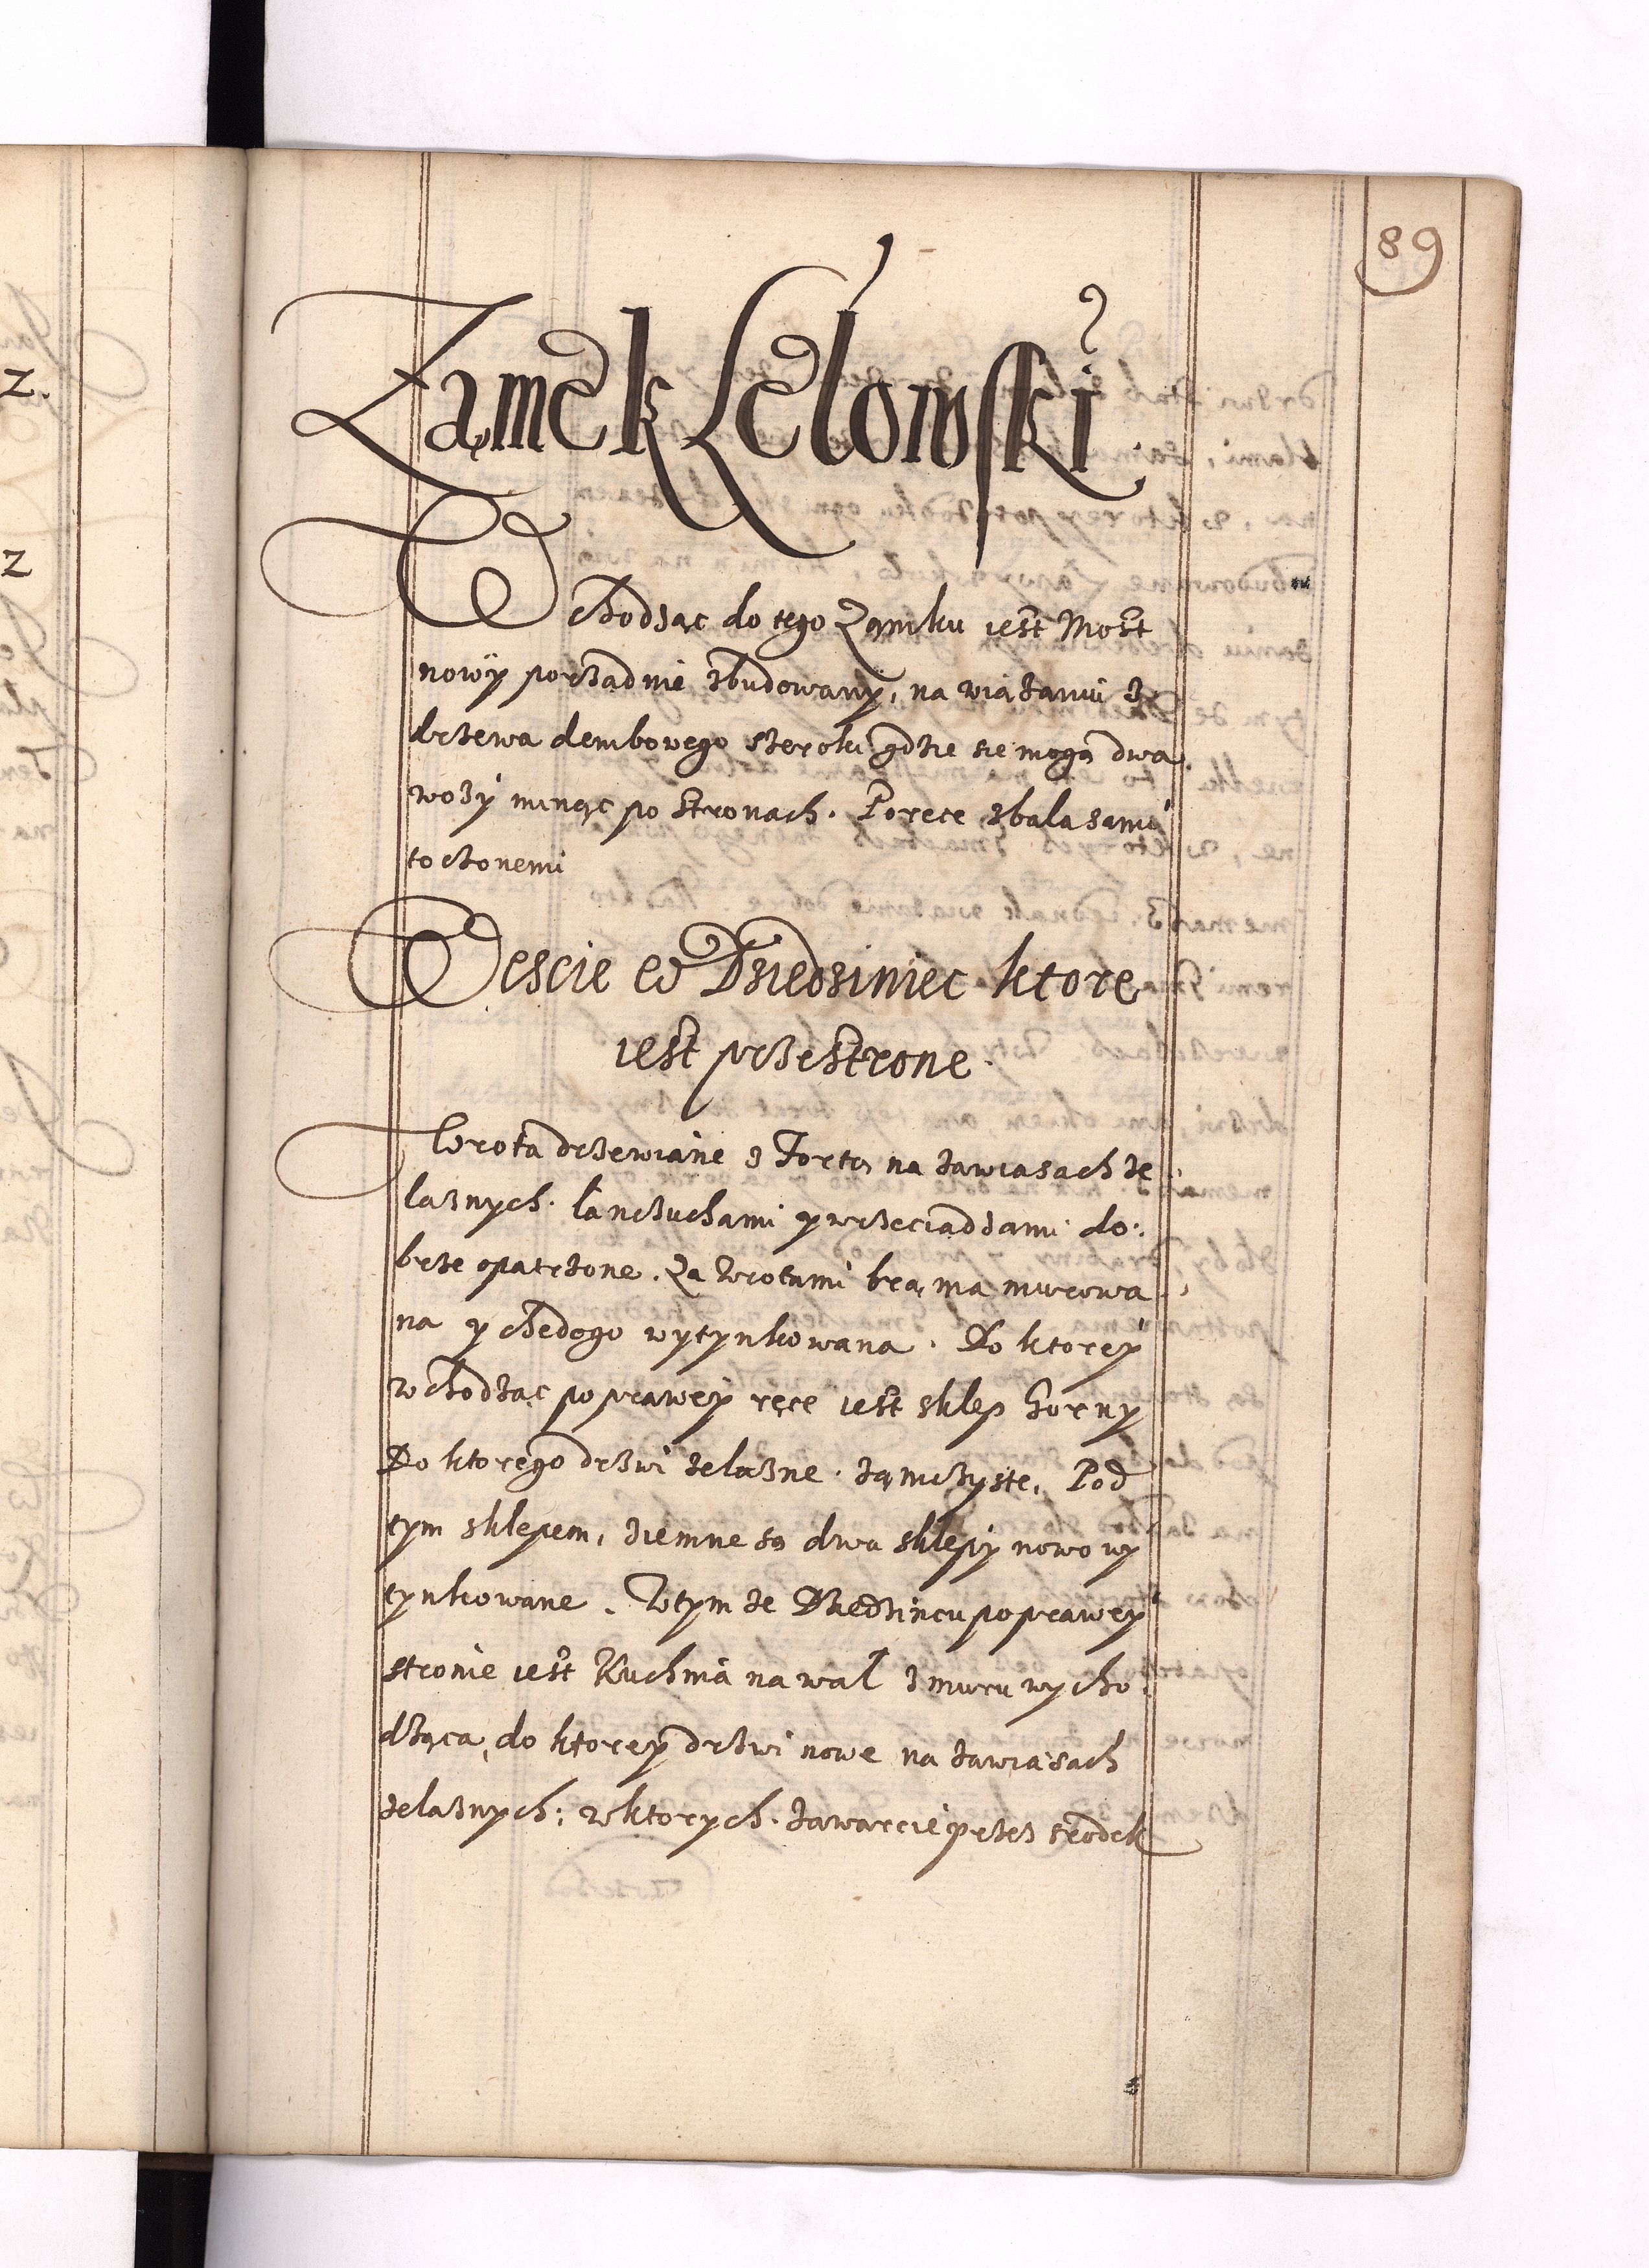 89
Zamek Lelowski
Wchodząc do tego Zamku iest Most
nowy porządnie zbudowany, na wiązaniu z
drzewa dembowego szeroki gdzie sie mogą dwa
wozy minąc po stronach. Porecze z balasami
toczonemi
Wescie w Dziedziniec ktore
iest przestrone.
Wrota drzewiane z Fortą na zawiasach że
laznych. łanczuchami y wrzeciadzami do
brze opatrzone. Za Wrotami brama murowa
na y chedogo wytynkowana. Do ktorey
wchodząc po prawey ręce iest sklep Gorny
Do ktorego drzwi żelazne. zamczyste. Pod
tym sklepem, ziemne są dwa sklepy nowo wy
tynkowane. W tym że Dziedzincu po prawey
stronie iest Kuchnia na wał z muru wycho
dząca, do ktorey drzwi nowe na zawiasach
żelaznych; w ktorych. zawarcie przez srodek
z.
z